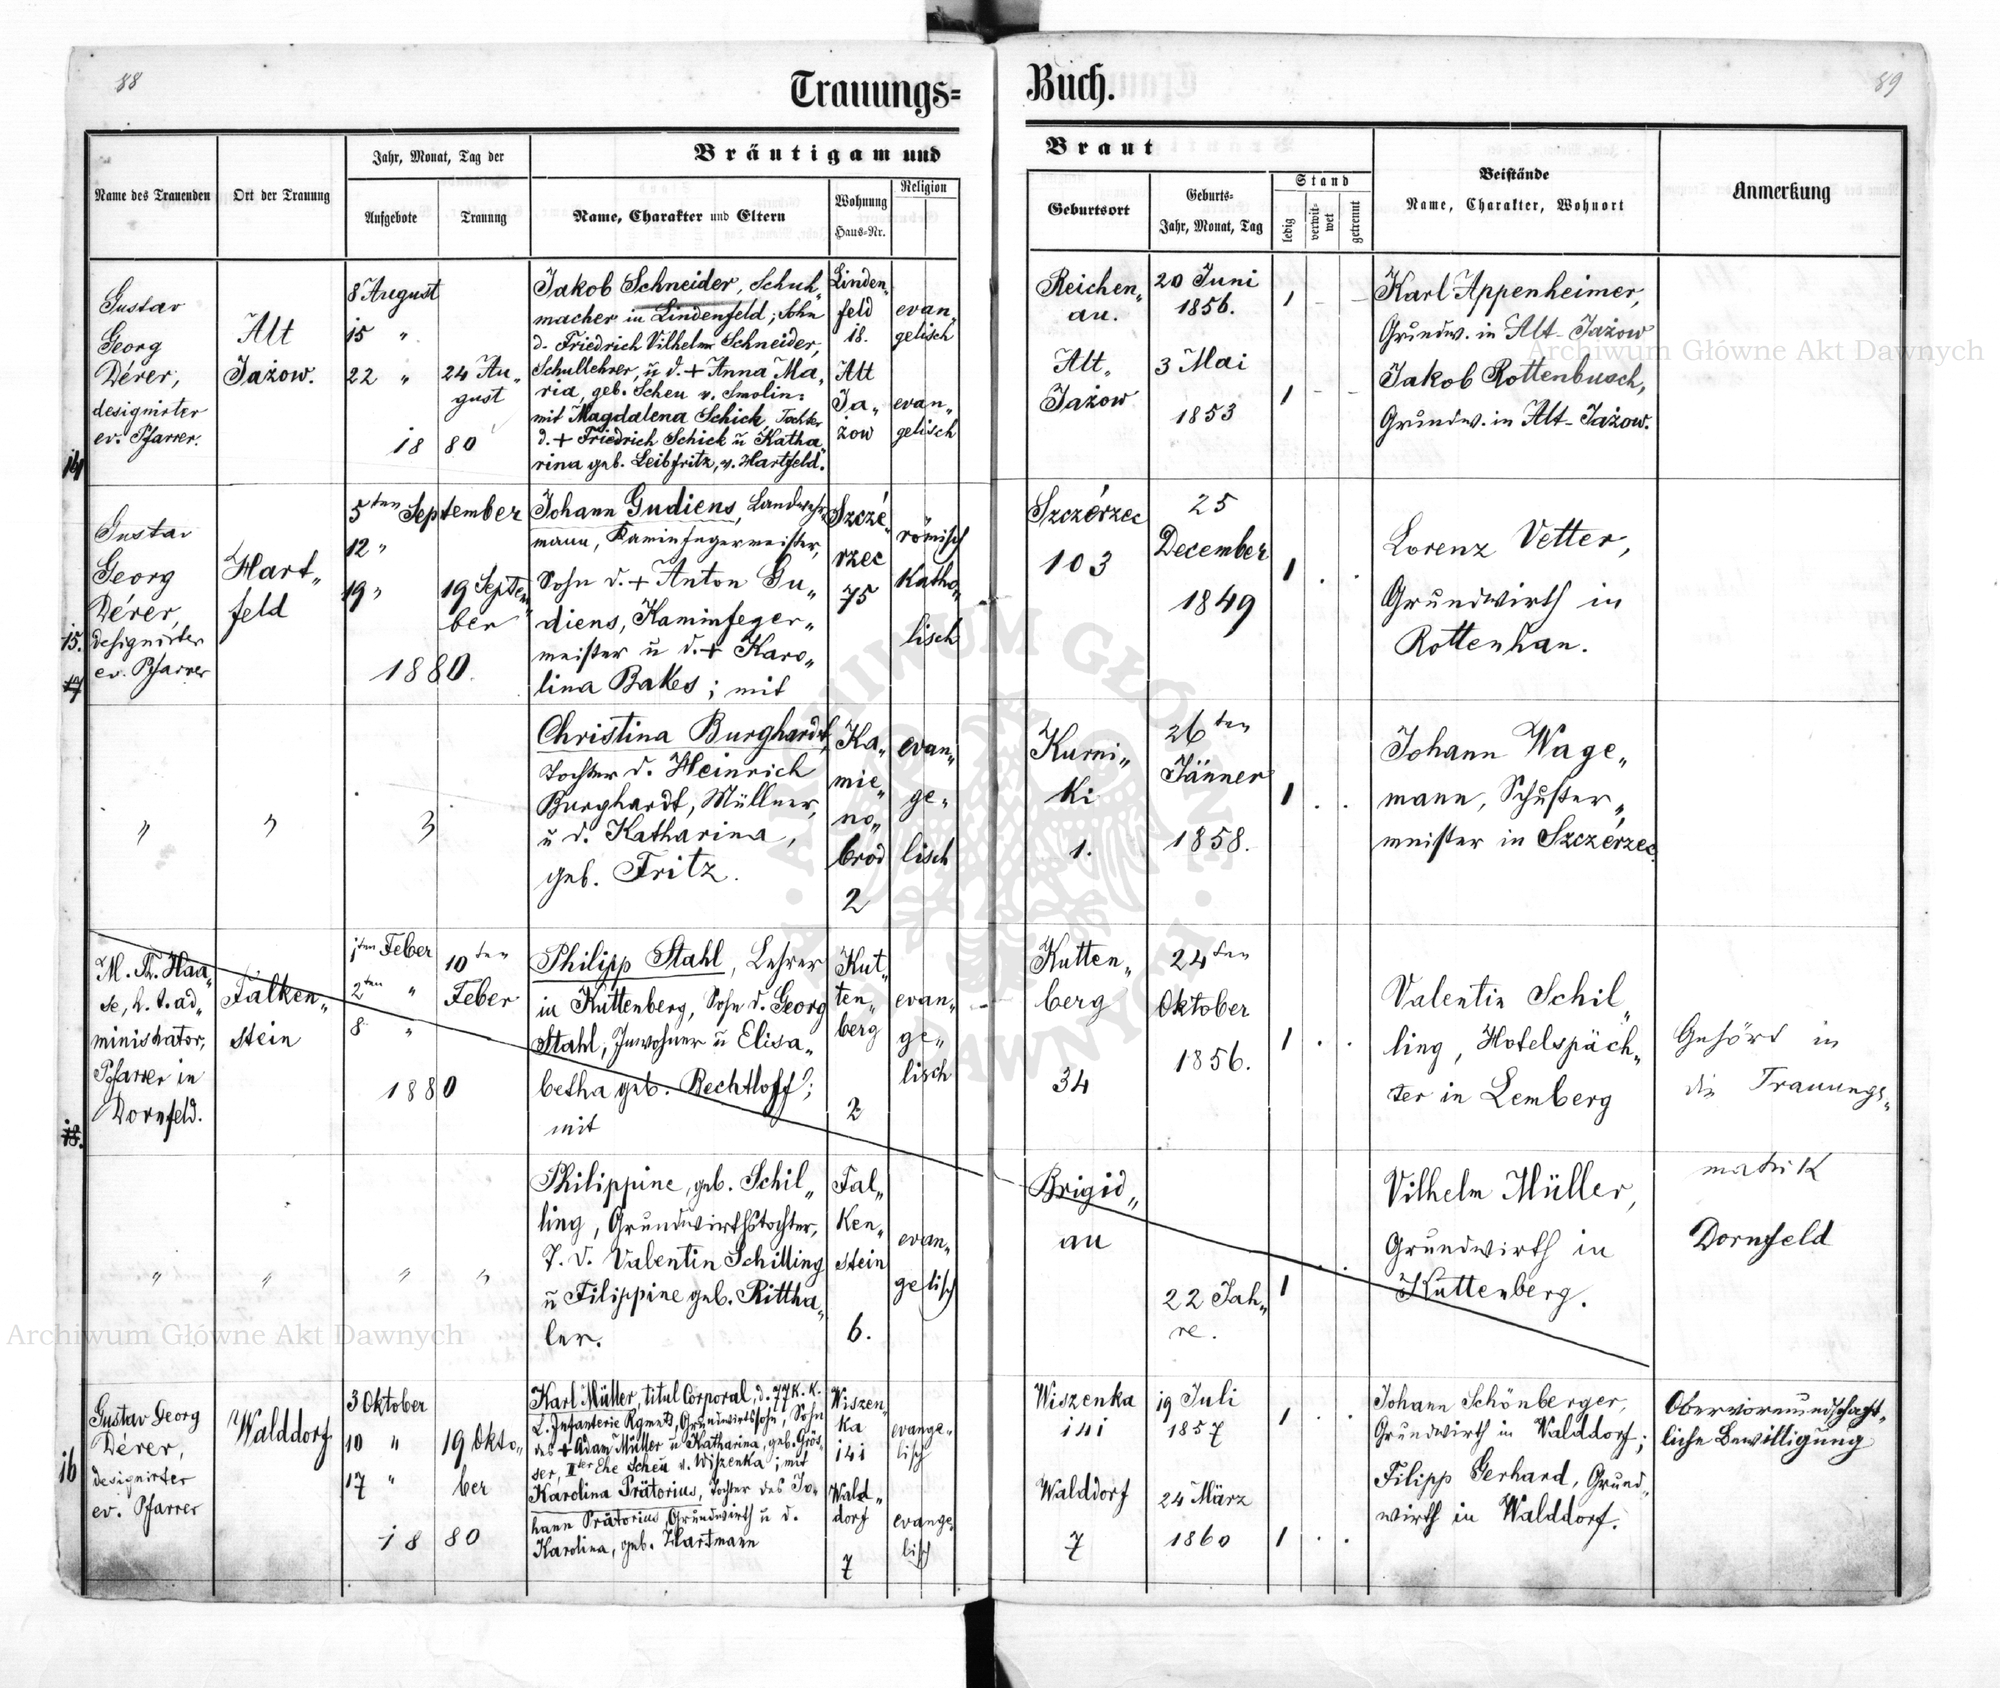 88
Trauungs=
Buch.
89
Name des Trauenden
Ort der Trauung
Jahr, Monat, Tag der
Aufgebote
Trauung
Bräutigam und
Name, Charakter und Eltern
Wohnung
Haus-Nr.
Religion
Braut
Geburtsort
Geburts-
Jahr, Monat, Tag
Stand
ledig
verwit-
wet
getrennt
Beistände
Name, Charakter, Wohnort
Anmerkung
14
Gustav
Georg
Dérer,
designirter
ev. Pfarrer.
Alt
Jażow.
8 August
15 "
22 "
24 Au„
gust
18 80
Jakob Schneider, Schuh„
macher in Lindenfeld; Sohn
d. Friedrich Vilhelm Schneider,
Schullehrer, u d. + Anna Ma„
ria, geb. Scheu v. Smolin:
mit Magdalena Schick, Tochter
d. + Friedrich Schick u Katha„
rina geb. Leibfritz, v. Hartfeld.
Linden„
feld
18.
Alt
Ja„
zow
evan„
gelisch
evan„
gelisch
Reichen„
au.
Alt„
Jażow
20 Juni
1856.
3 Mai
1853
1 - -
1 - -
Karl Appenheimer,
Grundw. in Alt-Jażow
Jakob Rottenbusch,
Grundw. in Alt-Jażow.
15.
17
Gustav
Georg
Dérer,
designirter
ev. Pfarrer
Hart„
feld
5ten September
12 "
19 "
19 Septem„
ber
1880.
Johann Gudiens, Landwehr„
mann, Kaminfegermeister,
Sohn d. + Anton Gu„
diens, Kaminfeger„
meister u d. + Karo„
lina Bakes; mit
Szczé„
rzec
75
römisch
Katho„
lisch
Szczérzec
103
25
December
1849
1 . .
Lorenz Vetter,
Grundwirth in
Rottenhan.
"
"
3
Christina Burghardt,
Tochter d. Heinrich
Burghardt, Müllner,
u d. Katharina,
geb. Fritz.
Ka„
mie„
no„
brod
2
evan„
ge„
lisch
Kurni„
ki
1.
26ten
Jänner
1858.
1 . .
Johann Wage„
mann, Schuster„
meister in Szczérzec.
18.
M. Th. Haa„
se, h. t. ad„
ministrator,
Pfarrer in
Dornfeld.
Falken„
stein
1ten Feber
2ten "
8 "
10ten
Feber
1880
Philipp Stahl, Lehrer
in Kuttenberg, Sohn d. Georg
Stahl, Inwohner u Elisa„
betha geb. Rechtloff;
mit
Kut„
ten„
berg
2
evan„
ge„
lisch
Kutten„
berg
34
24ten
Oktober
1856.
1 . .
Valentin Schil„
ling, Hotelspäch„
ter in Lemberg
Gehört in
die Trauungs„
matrik
Dornfeld
"
"
"
"
Philippine, geb. Schil„
ling, Grundwirthstochter,
T. d. Valentin Schilling
u Filippine geb. Rittha„
ler.
Fal„
ken„
stein
6.
evan„
gelisch
Brigid„
au
22 Jah„
re.
1 . .
Vilhelm Müller,
Grundwirth in
Kuttenberg.
16
Gustav Georg
Dérer,
designirter
ev. Pfarrer
Walddorf
3 Oktober
10 "
17 "
19 Okto„
ber
18 80
Karl Müller, titul Corporal, d. 77 K. K.
L. Infanterie Rgmnts, Grundwirtssohn, Sohn
des + Adam Müller u Katharina, geb. Grös„
ser, IIter Ehe Scheu v. Wiszenka; mit
Karolina Prätorius, Tochter des Jo„
hann Prätorius, Grundwirth u d.
Karolina, geb. Hartmann
Wiszen„
ka
141
Wald„
dorf
7
evange„
lisch
evange„
lisch
Wiszenka
141
Walddorf
7
19 Juli
1857
24 März
1860
1 . .
1 . .
Johann Schönberger,
Grundwirth in Walddorf;
Filipp Gerhard, Grund„
wirth in Walddorf.
Obervormundschaft„
liche Bewilligung
Archiwum Główne Akt Dawnych
Archiwum Główne Akt Dawnych
ARCHIWUM GŁÓWNE AKT DAWNYCH